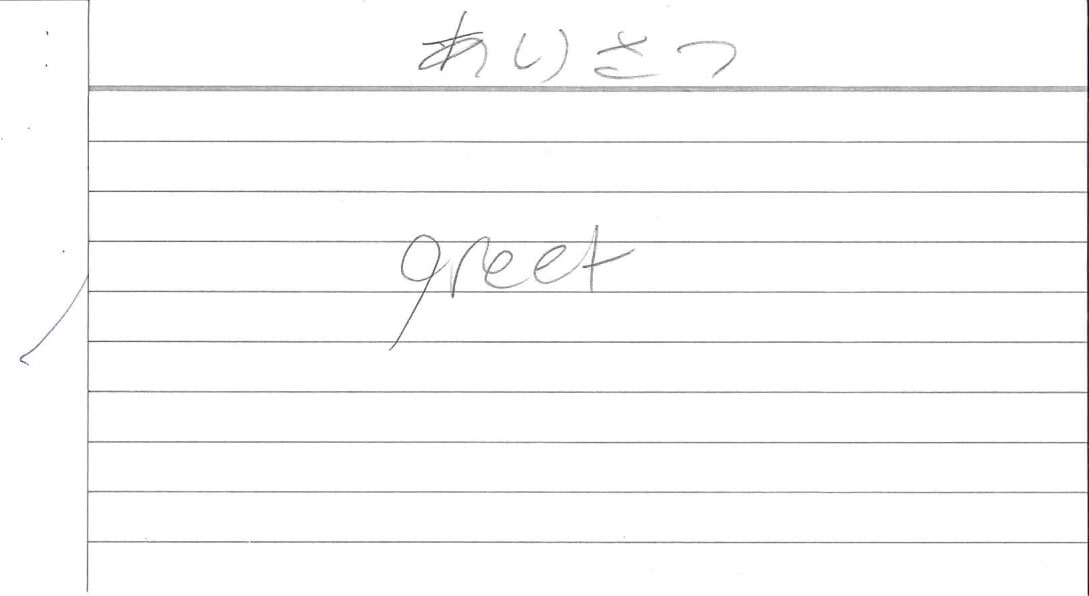 あいさつ
greet